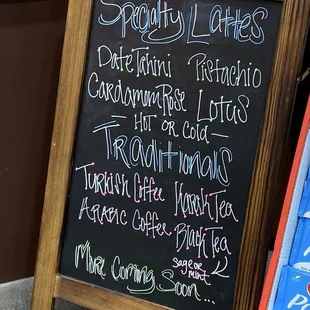 Specialty Lattes
Date Tahini Pistachio
Cardamom Rose Lotus
- Hot or Cold -
Traditionals
Turkish Coffee Karak Tea
Arabic Coffee Black Tea
sage or
mint
More Coming Soon...